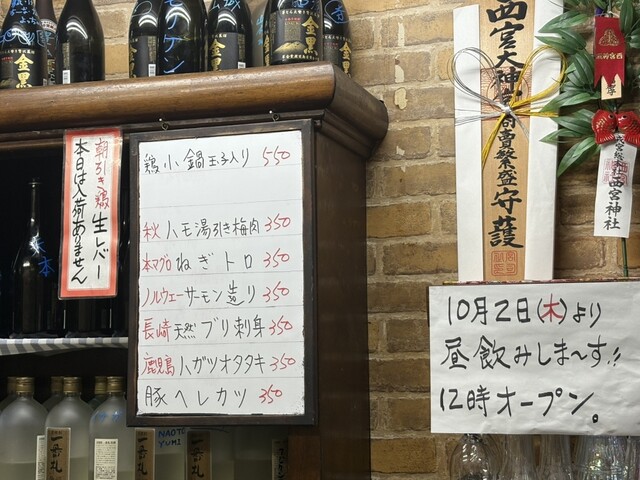 金黒
金黒
金黒
朝引き鶏
生レバー
本日は入荷ありません
鶏小鍋玉子入り 550
秋ハモ湯引き梅肉 350
本マグロねぎトロ 350
ノルウェーサーモン造り 350
長崎天然ブリ刺身 350
鹿児島ハガツオタタキ 350
豚ヘレカツ 350
西宮大神
商売繁盛守護
西宮神社
10月2日(木)より
昼飲みしま~す!!
12時オープン。
NAOTO
YUMI